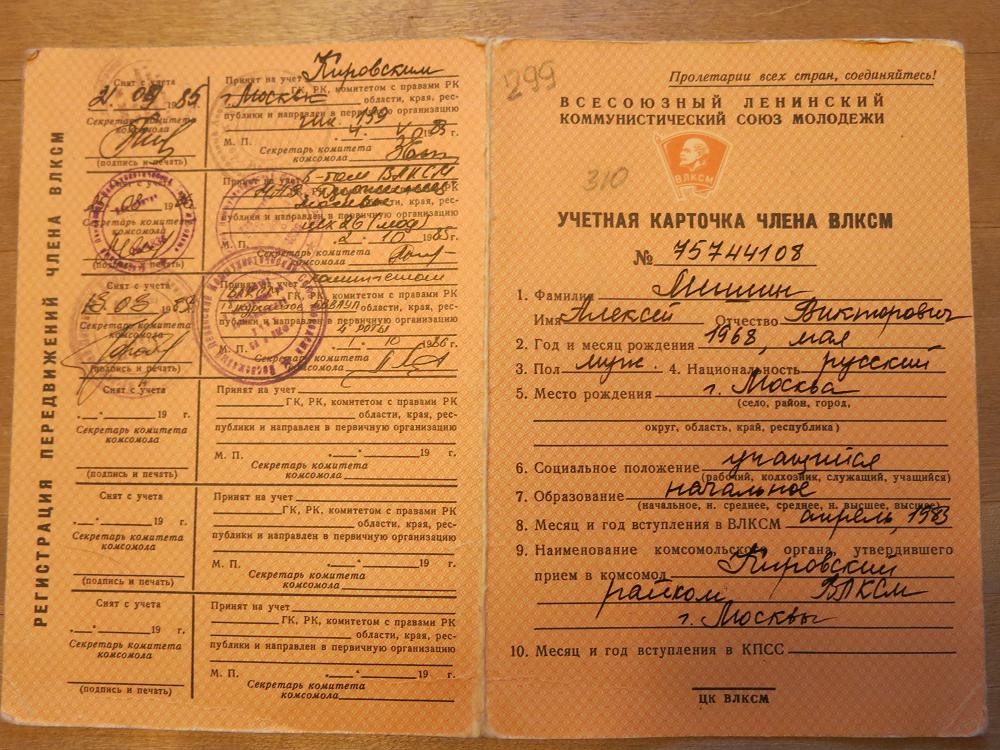 РЕГИСТРАЦИЯ ПЕРЕДВИЖЕНИЙ ЧЛЕНА ВЛКСМ
Снят с учета
21 09 1985 г.
Секретарь комитета
комсомола
(подпись и печать)
Принят на учет Кировским
г. Москвы ГК, РК, комитетом с правами РК
области, края, рес-
публики и направлен в первичную организацию
шк. 199
М. П. 4. V 1983 г.
Секретарь комитета
комсомола
Снят с учета
19 г.
Секретарь комитета
комсомола
(подпись и печать)
Принят на учет ВЛКСМ
ГК, РК, комитетом с правами РК
Москвы области, края, рес-
публики и направлен в первичную организацию
цех 26
М. П. 2. 10 1985 г.
Секретарь комитета
комсомола
Снят с учета
13 03 19 г.
Секретарь комитета
комсомола
(подпись и печать)
Принят на учет комитетом
ГК, РК, комитетом с правами РК
области, края, рес-
публики и направлен в первичную организацию
4 роты
М. П. 1. 10 1986 г.
Секретарь комитета
комсомола
Снят с учета
19 г.
Секретарь комитета
комсомола
(подпись и печать)
Принят на учет
ГК, РК, комитетом с правами РК
области, края, рес-
публики и направлен в первичную организацию
М. П. 19 г.
Секретарь комитета
комсомола
Снят с учета
19 г.
Секретарь комитета
комсомола
(подпись и печать)
Принят на учет
ГК, РК, комитетом с правами РК
области, края, рес-
публики и направлен в первичную организацию
М. П. 19 г.
Секретарь комитета
комсомола
Снят с учета
19 г.
Секретарь комитета
комсомола
(подпись и печать)
Принят на учет
ГК, РК, комитетом с правами РК
области, края, рес-
публики и направлен в первичную организацию
М. П. 19 г.
Секретарь комитета
комсомола
299
Пролетарии всех стран, соединяйтесь!
ВСЕСОЮЗНЫЙ ЛЕНИНСКИЙ
КОММУНИСТИЧЕСКИЙ СОЮЗ МОЛОДЕЖИ
310
ВЛКСМ
УЧЕТНАЯ КАРТОЧКА ЧЛЕНА ВЛКСМ
№ 75744108
1. Фамилия Мишин
Имя Алексей Отчество Викторович
2. Год и месяц рождения 1968, мая
3. Пол муж. 4. Национальность русский
5. Место рождения г. Москва
(село, район, город,
округ, область, край, республика)
6. Социальное положение учащийся
(рабочий, колхозник, служащий, учащийся)
7. Образование начальное
(начальное, н. среднее, среднее, н. высшее, высшее)
8. Месяц и год вступления в ВЛКСМ апрель, 1983
9. Наименование комсомольского органа, утвердившего
прием в комсомол Кировский
райком ВЛКСМ
г. Москвы
10. Месяц и год вступления в КПСС
ЦК ВЛКСМ